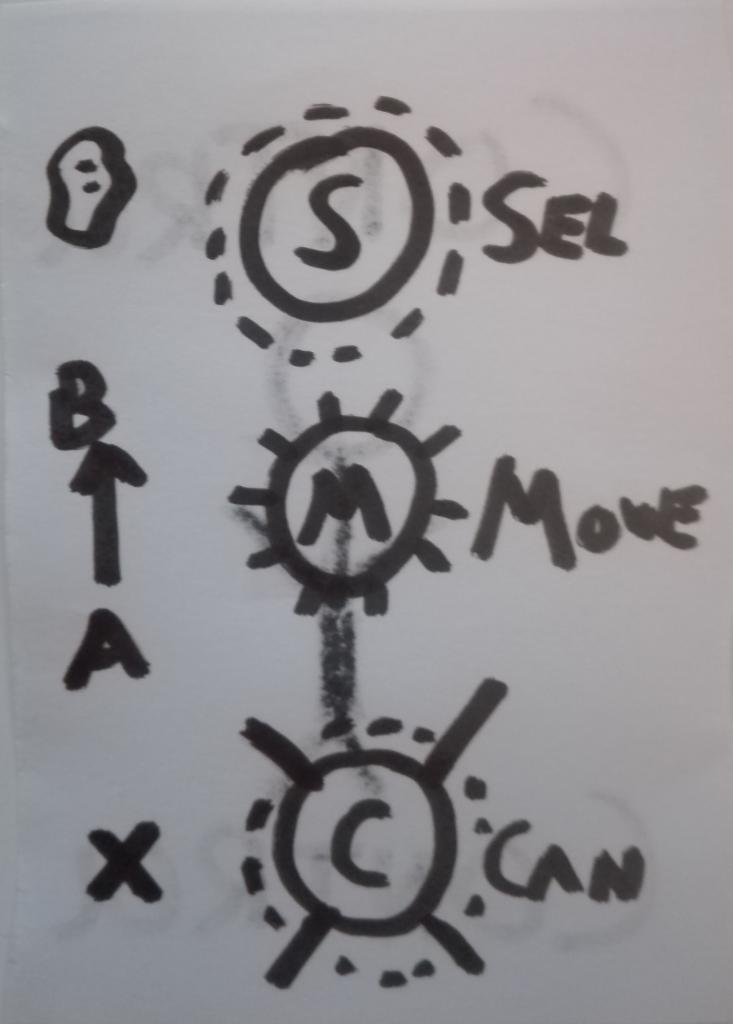 S SEL
B
M MOVE
A
X C CAN